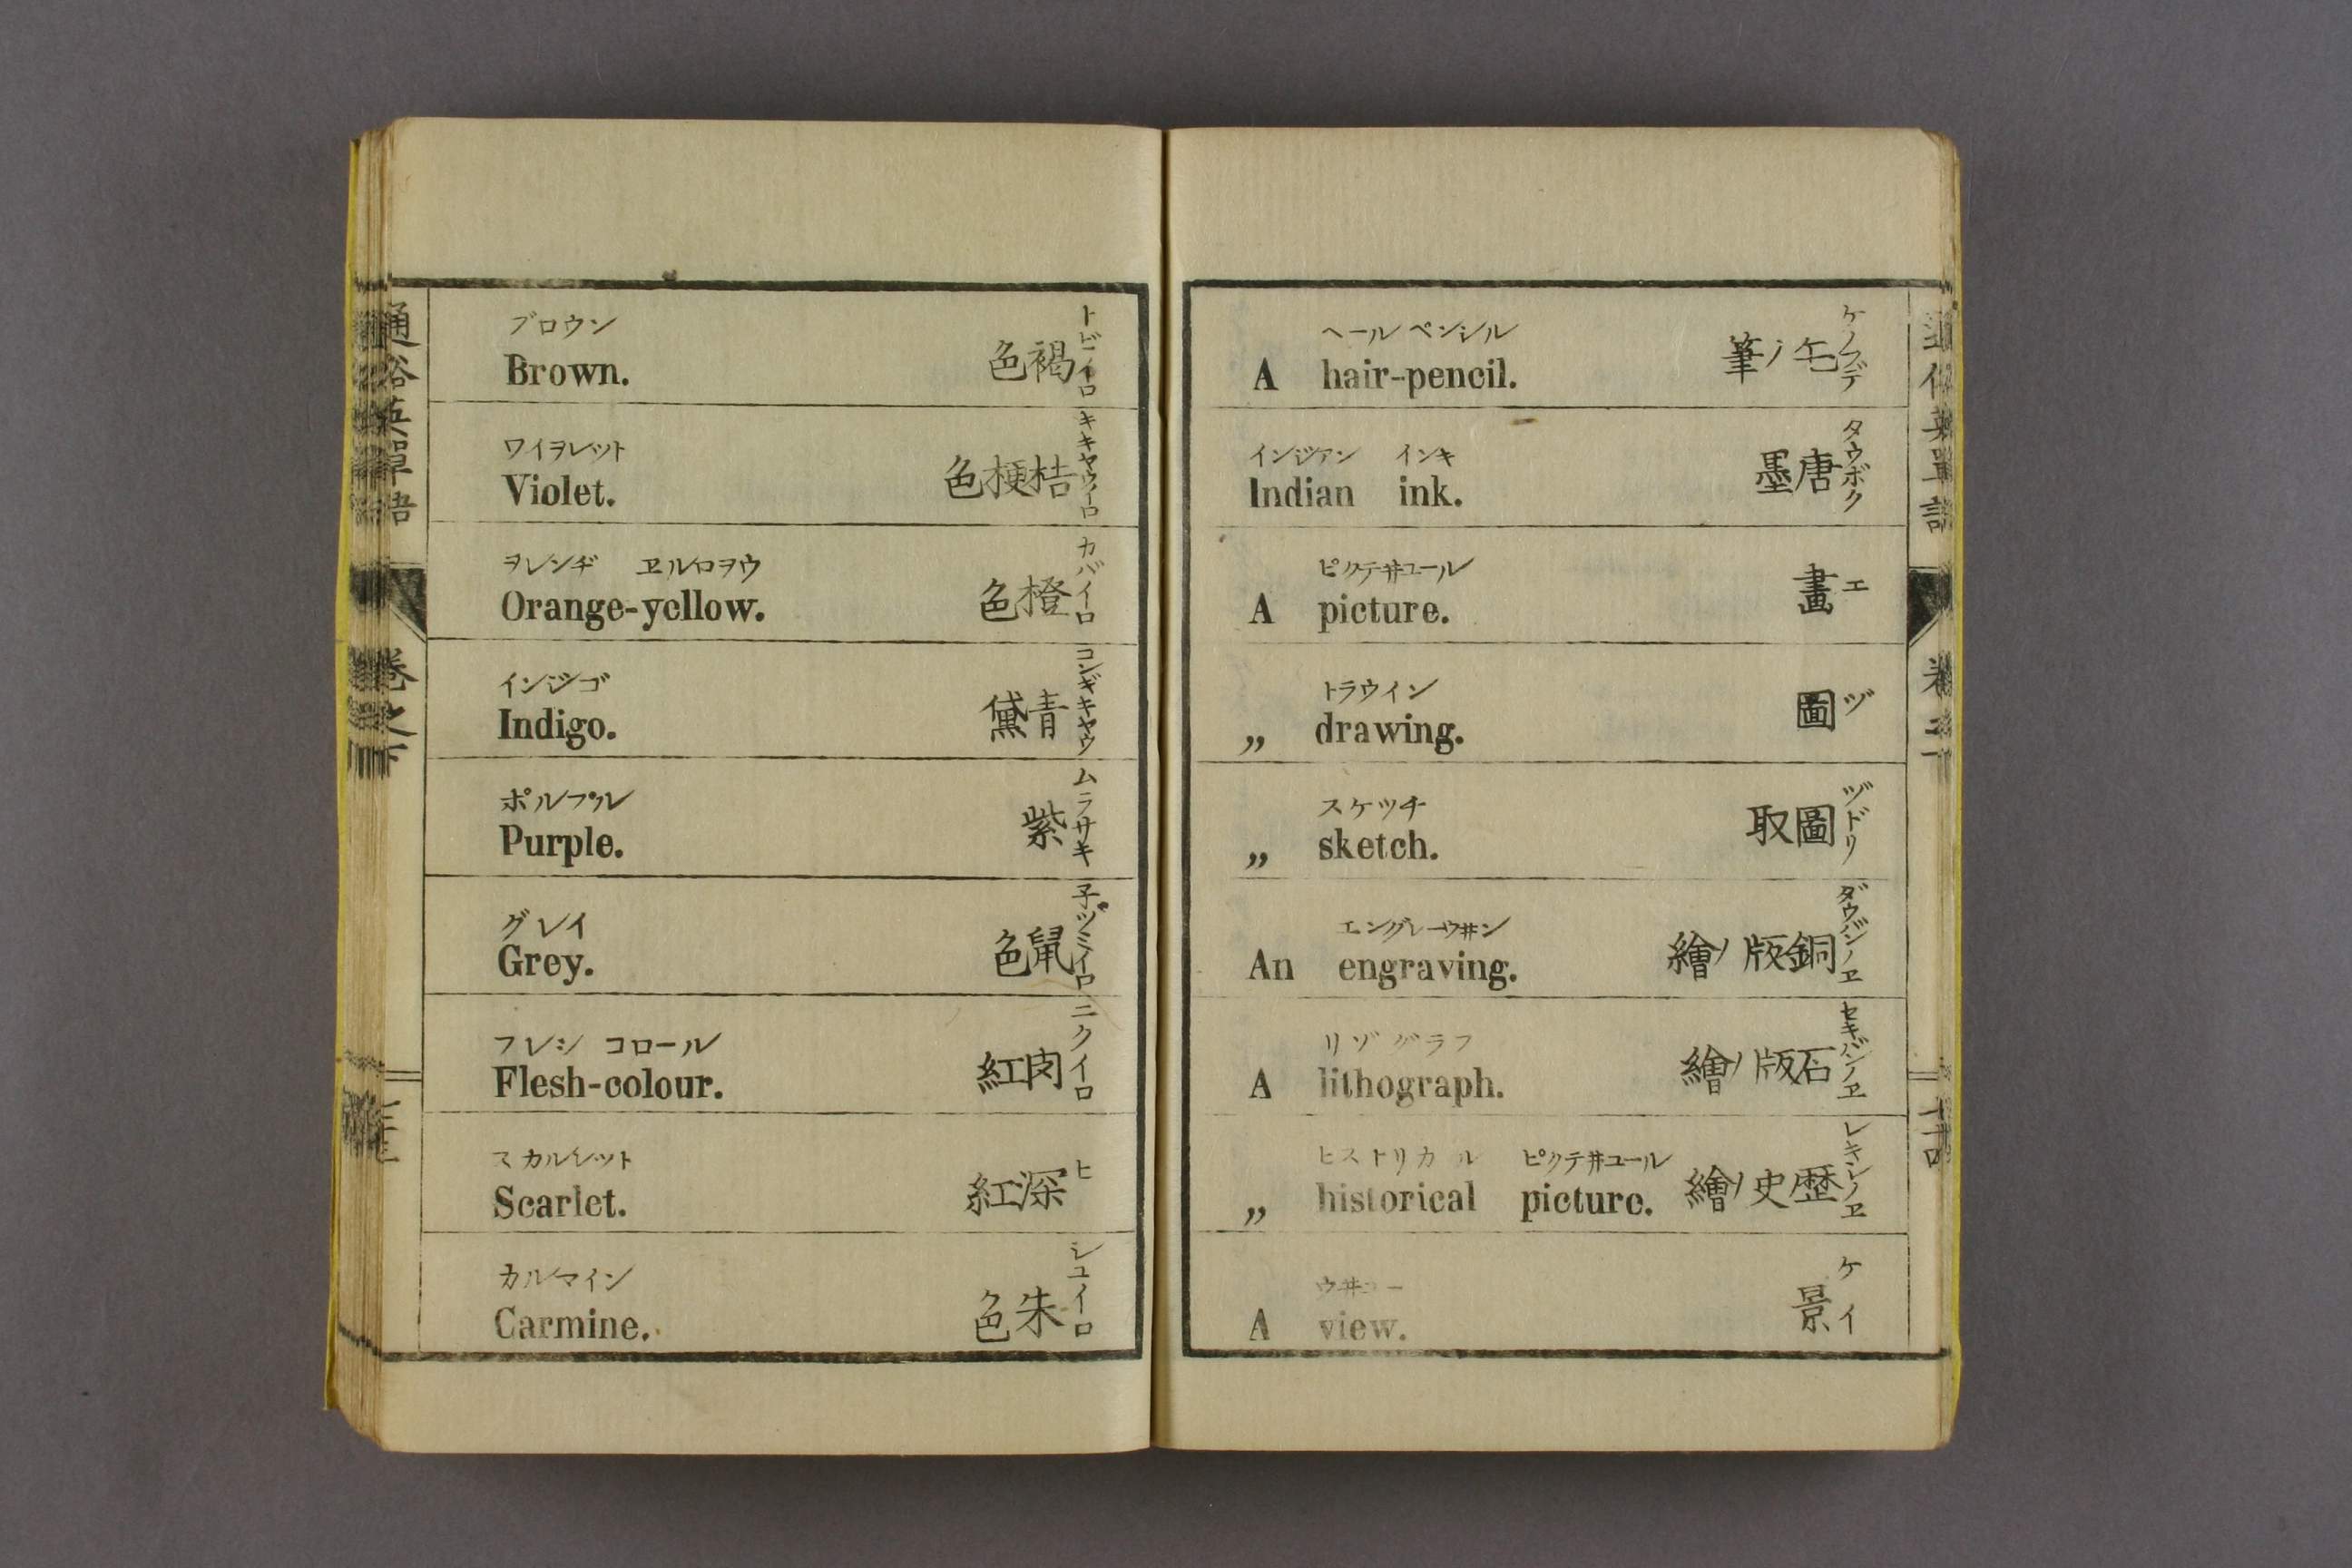 通俗英單語
卷之下
ブロウン
トビイロ
Brown.
色褐
ワイヲレット
キキヤウイロ
Violet.
色梗桔
ヲレンヂ ヱルロヲウ
カバイロ
Orange-yellow.
色橙
インジゴ
コンギキヤウ
Indigo.
黛青
ポルプル
ムラサキ
Purple.
紫
グレイ
子ヅミイロ
Grey.
色鼠
フレシ コロール
ニクイロ
Flesh-colour.
紅肉
スカルレット
ヒ
Scarlet.
紅深
カルマイン
シユイロ
Carmine.
色朱
ヘール ペンシル
ケノフデ
A hair-pencil.
筆ノ毛
インジアン インキ
タウボク
Indian ink.
墨唐
ピクテ井ユール
エ
A picture.
畫
トラウイン
ヅ
„ drawing.
圖
スケツチ
ヅドリ
„ sketch.
取圖
エングレーウ井ン
ダウバンノヱ
An engraving.
繪ノ版銅
リヅグラフ
セキバンノヱ
A lithograph.
繪ノ版石
ヒストリカル ピクテ井ユール
レキシノヱ
„ historical picture.
繪ノ史歴
ウ井ユー
ケイ
A view.
景